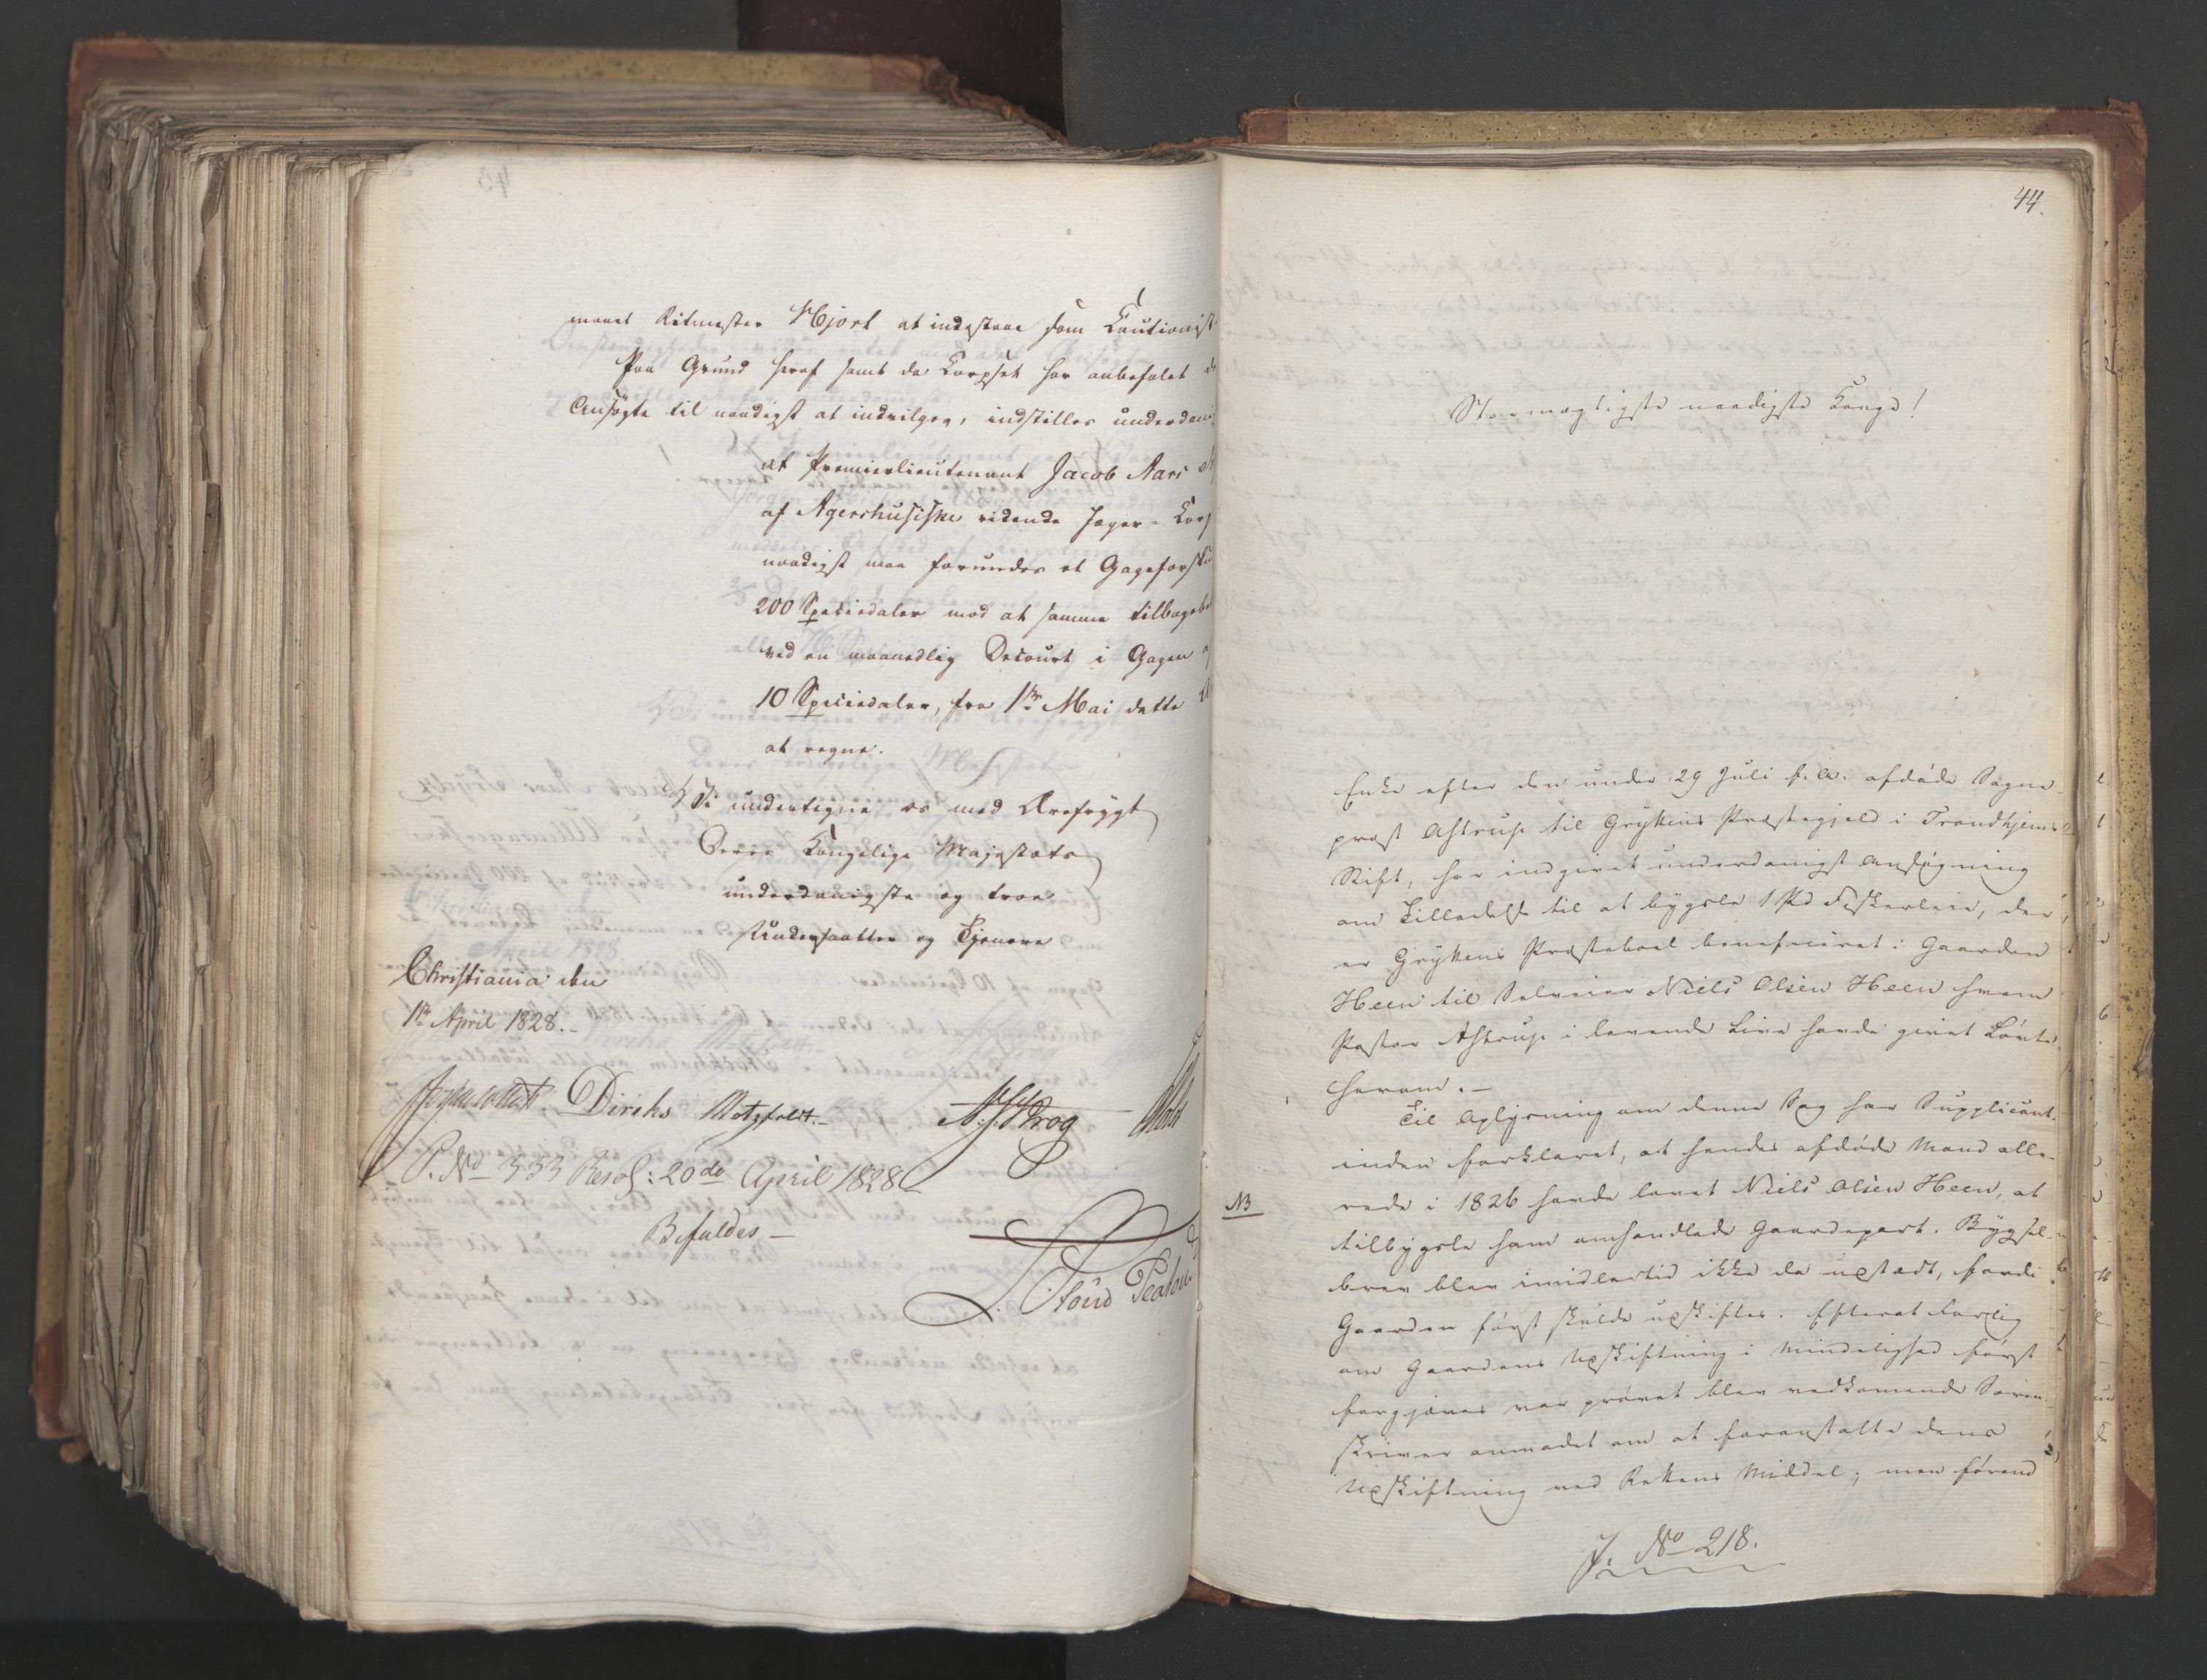 meget Ritmester Hjort at indestaae som Cautionist.
Paa Grund heraf samt da Korpset har anbefalet
Ansøgte til naadigst at indvilges, indstilles underdan
at Premierlieutenant Jacob Aars
af Agershusiske ridende Jæger-Korp
naadigst maa forundes et Gageforsku
200 Speciedaler mod at samme tilbagebe
ved en maanedlig Decourt i Gagen
10 Speciedaler, fra 1ste Mai dette
at regne.
Vi undertegne os med Ærefrygt
Deres Kongelige Majestæts
underdanigste og troe
Undersaatter og Tjenere
Christiania den
1ste April 1828.-
Diriks Motzfeldt.- Krog
P. No 533 Resol: 20de April 1828
Bifaldes -
44.
Stormægtigste naadigste Konge!
Enke efter den under 29 Juli f. A. afdøde Sogne-
præst Astrup til Gryttens Præstegjeld i Trondhjems
Stift, har indgivet underdanigst Ansøgning
om Tilladelse til at bygsle 1 Pd Fiskerleie, der
er Gryttens Præstebord beneficeret i Gaarden
Heen til Selveier Niels Olsen Heen hvem
Pastor Astrup i levende Live havde givet Løvte
herom. -
Til Oplysning om denne Sag har Supplicant-
inden forklaret, at hendes afdøde Mand alle-
NB
rede i 1826 havde lovet Niels Olsen Heen, at
tilbygsle ham omhandlede Gaardepart. Bygsel-
brev blev imidlertid ikke da udstædt, fordi
Gaarden først skulde udskiftes. Efterat Forlig
om Gaardens Udskiftning i Mindelighed først
forgjæves var prøvet blev vedkommende Soren-
skriver anmodet om at foranstalte dens
Udskiftning ved Rettens Middel; men førend
J. No 218.